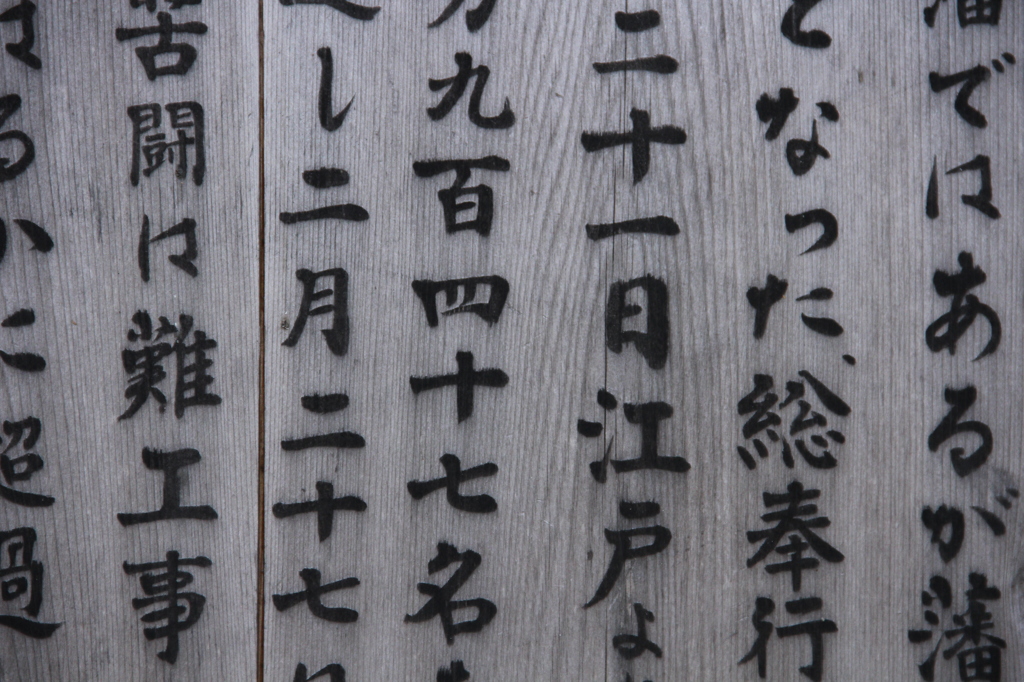 藩ではあるが藩
となった、総奉行
二十一日江戸よ
九百四十七名
し二月二十七
苦闘は難工事
はるかに超過